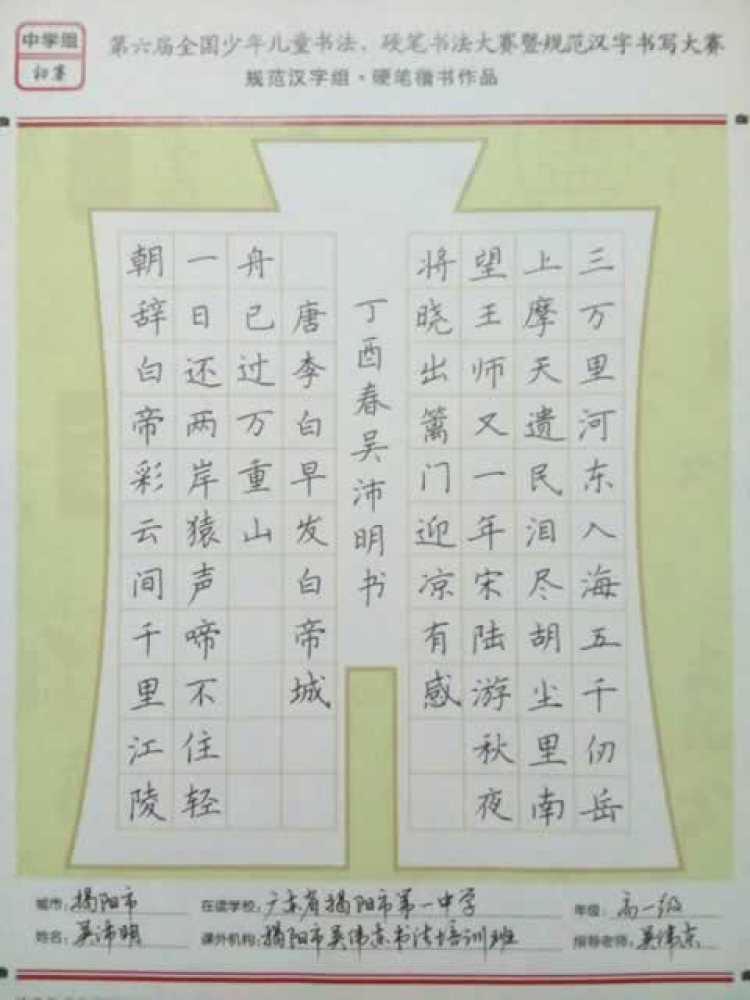 中学组
初赛
第六届全国少年儿童书法、硬笔书法大赛暨规范汉字书写大赛
规范汉字组·硬笔楷书作品
三万里河东入海五千仞岳
上摩天遗民泪尽胡尘里南
望王师又一年宋陆游秋夜
将晓出篱门迎凉有感
丁酉春吴沛明书
朝辞白帝彩云间千里江陵
一日还两岸猿声啼不住轻
舟已过万重山
唐李白早发白帝城
城市：揭阳市 在读学校：广东省揭阳市第一中学 年级：高一级
姓名：吴沛明 课外机构：揭阳市吴伟东书法培训班 指导老师：吴伟东